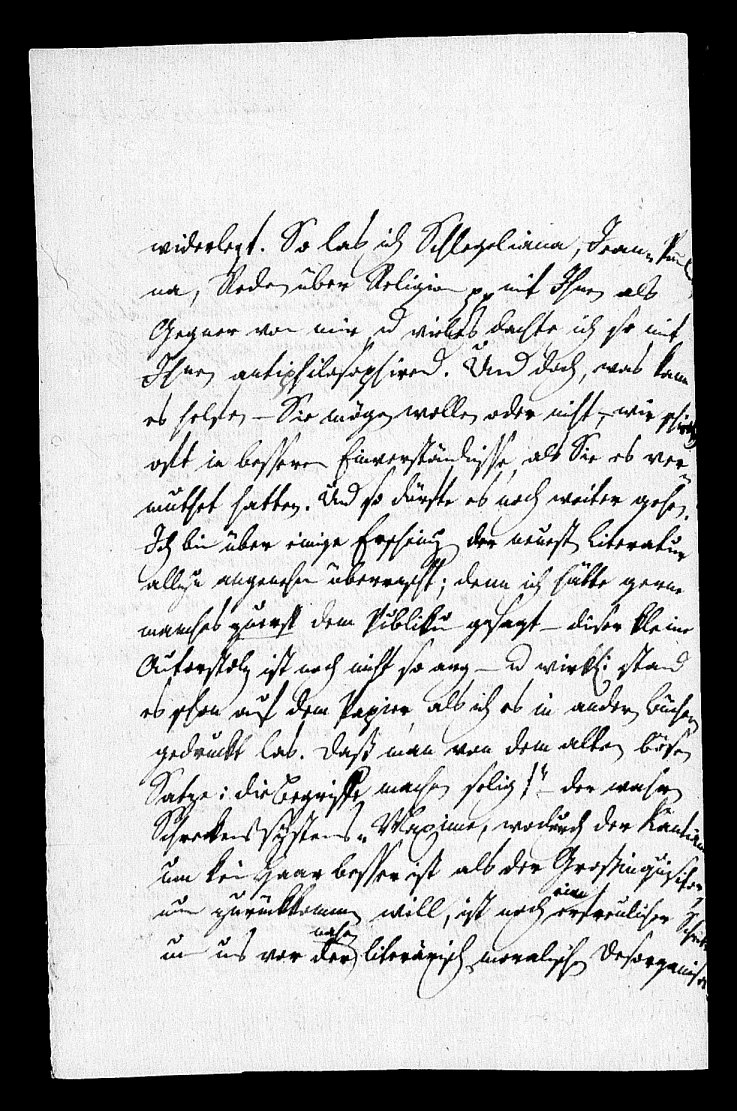 widerlegt. So las ich Schlegeliana, Jean-Paulia
na, Reden über Religion pp mit Ihnen als
Gegner von mir, u vieles dachte ich so mit
Ihnen antiphilosophirend. Und doch, was kann
es helfen – Sie mögen wollen oder nicht – wir sind
oft in besserem Einverständnisse, als Sie es ver-
muthet hatten. Und so dürfte es noch weiter gehen.
Ich bin über einige Erscheing der neuest Literatur
allzu angenehm überrascht; denn ich hätte gerne
manches zuerst dem Publikum gesagt – dieser kleine
Autorstolz ist noch nicht so arg – u wirkl: stand
es schon auf dem Papier, als ich es in andern Büchern
gedruckt las. Daß man von dem alten bösen
Satze: die Begriffe machen selig!" – der wahren
Schreckenssystems-Maxime, wodurch der Kantianer
um kein Haar besser ist als der Großinquisitor,
nun zurückkommen will, ist noch ein erfreulicher Schritt
um uns vor der nahen literärisch-moralischen Desorganisa